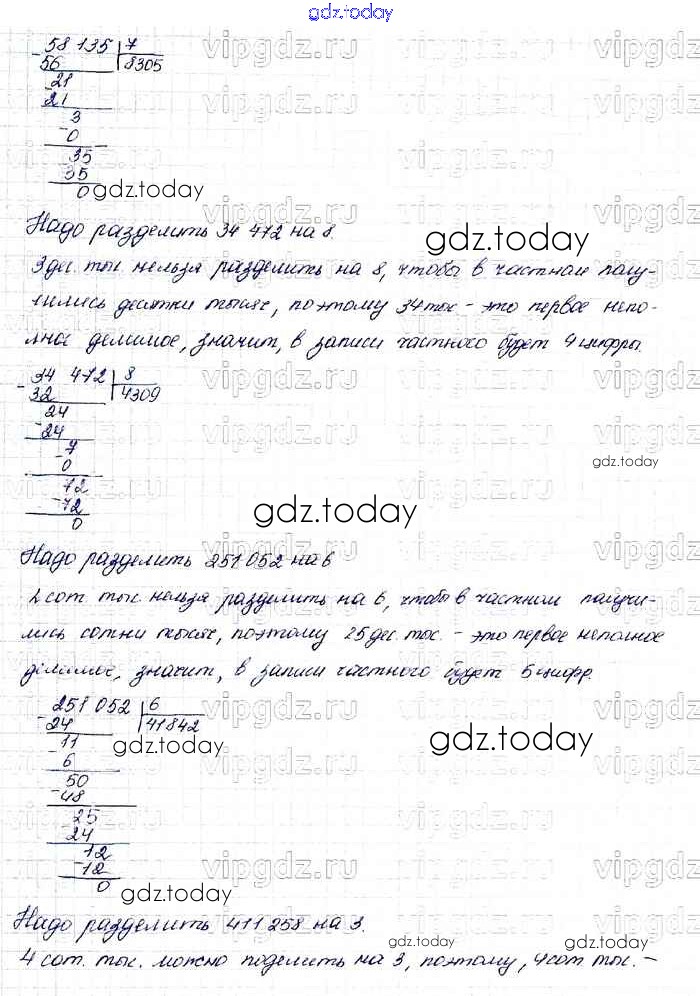 gdz.today
58 135 | 7
56 8305
21
21
3
0
35
35
0
gdz.today
Надо разделить 34 472 на 8.
gdz.today
3 дес. тыс. нельзя разделить на 8, чтобы в частном полу-
чились десятки тысяч, поэтому 34 тыс - это первое непо-
лное делимое, значит, в записи частного будет 4 цифры.
34 472 | 8
32 4309
24
24
7
0
gdz.today
72
72
0
gdz.today
Надо разделить 251 052 на 6
2 сот. тыс. нельзя разделить на 6, чтобы в частном получи-
лись сотни тысяч, поэтому 25 дес. тыс. - это первое неполное
делимое, значит, в записи частного будет 5 цифр.
251 052 | 6
24 41842
11
gdz.today
gdz.today
6
50
48
25
24
12
12
0
gdz.today
Надо разделить 411 258 на 3.
gdz.today
gdz.today
4 сот. тыс. можно поделить на 3, поэтому, 4 сот тыс. -
vipgdz.ru
vipgdz.ru
vipgdz.ru
vipgdz.ru
vipgdz.ru
vipgdz.ru
vipgdz.ru
vipgdz.ru
vipgdz.ru